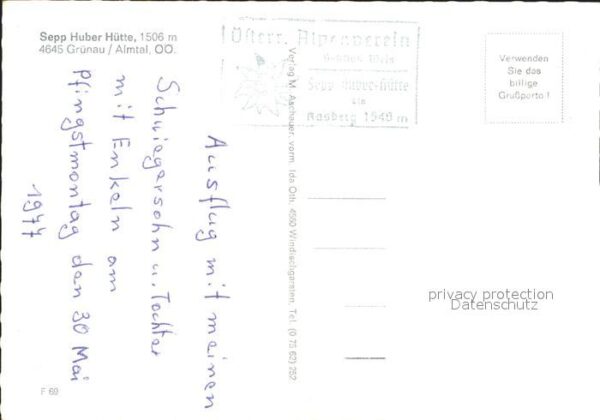 Sepp Huber Hütte, 1506 m
4645 Grünau / Almtal, OÖ.
Österr. Alpenverein
Sektion Wels
Sepp-Huber-Hütte
Kasberg 1549 m
Verwenden
Sie das
billige
Grußporto!
Ausflug mit meinen
Schwiegersohn u. Tochter
mit Enkeln am
Pfingstmontag den 30 Mai
1977
Verlag M. Aschauer, vorm. Ida Oth, 4580 Windischgarsten, Tel. (0 75 62) 252
privacy protection
Datenschutz
F 69